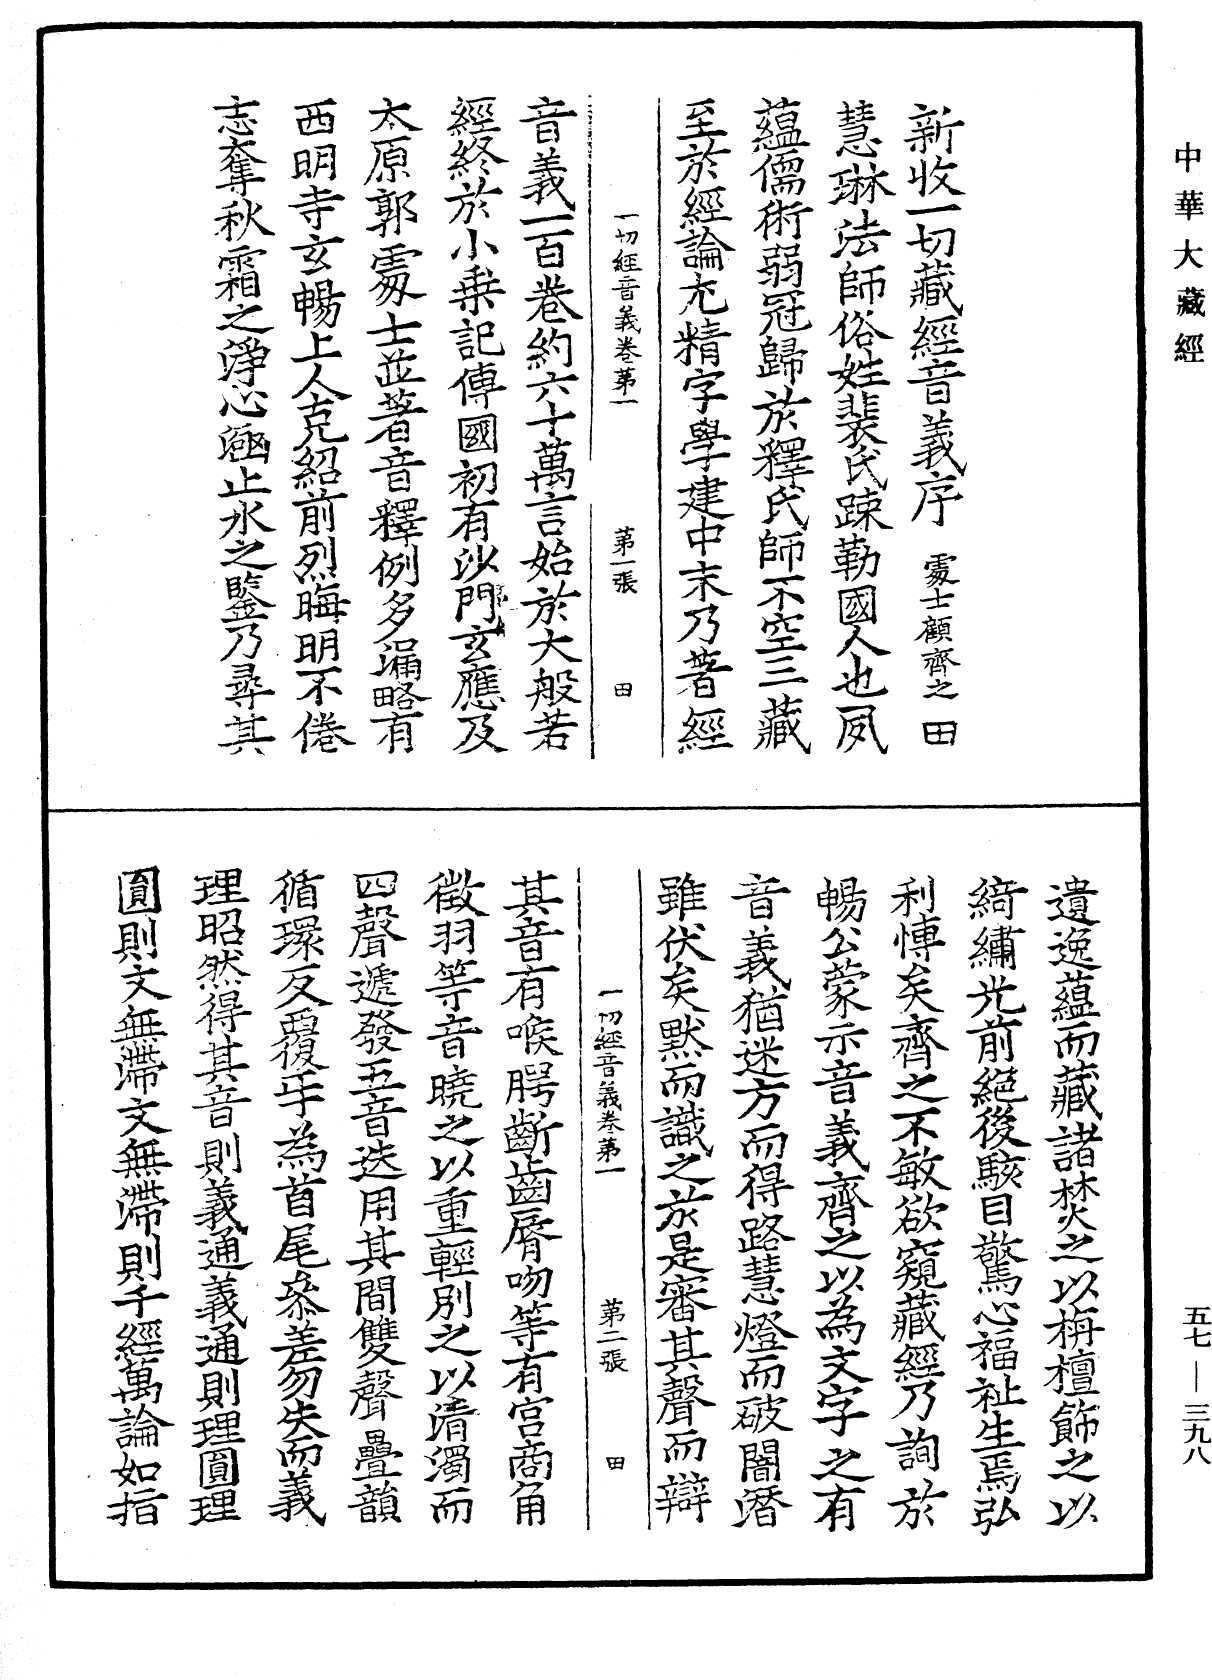 中華大藏經
新收一切藏經音義序　處士顧齊之　田
慧琳法師俗姓裴氏踈勒國人也夙
蘊儒術弱冠歸於釋氏師不空三藏
至於經論尤精字學建中末乃著經
一切經音義卷第一　第一張　田
音義一百卷約六十萬言始於大般若
經終於小乘記傳國初有沙門玄應及
太原郭處士並著音釋例多漏略有
西明寺玄暢上人克紹前烈晦明不倦
志奪秋霜之淨心逾止水之鑒乃尋其
遺逸蘊而藏諸焚之以栴檀飾之以
綺繡光前絕後駭目驚心福祉生焉弘
利博矣齊之不敏欲窺藏經乃詢於
暢公蒙示音義齊之以為文字之有
音義猶迷方而得路慧燈而破闇潛
雖伏矣默而識之於是審其聲而辯
一切經音義卷第一　第二張　田
其音有喉腭齗齒脣吻等有宮商角
徵羽等音曉之以重輕別之以清濁而
四聲遞發五音迭用其間雙聲疊韻
循環反覆乎為首尾參差勿失而義
理昭然得其音則義通義通則理圓理
圓則文無滯文無滯則千經萬論如指
五七—三九八